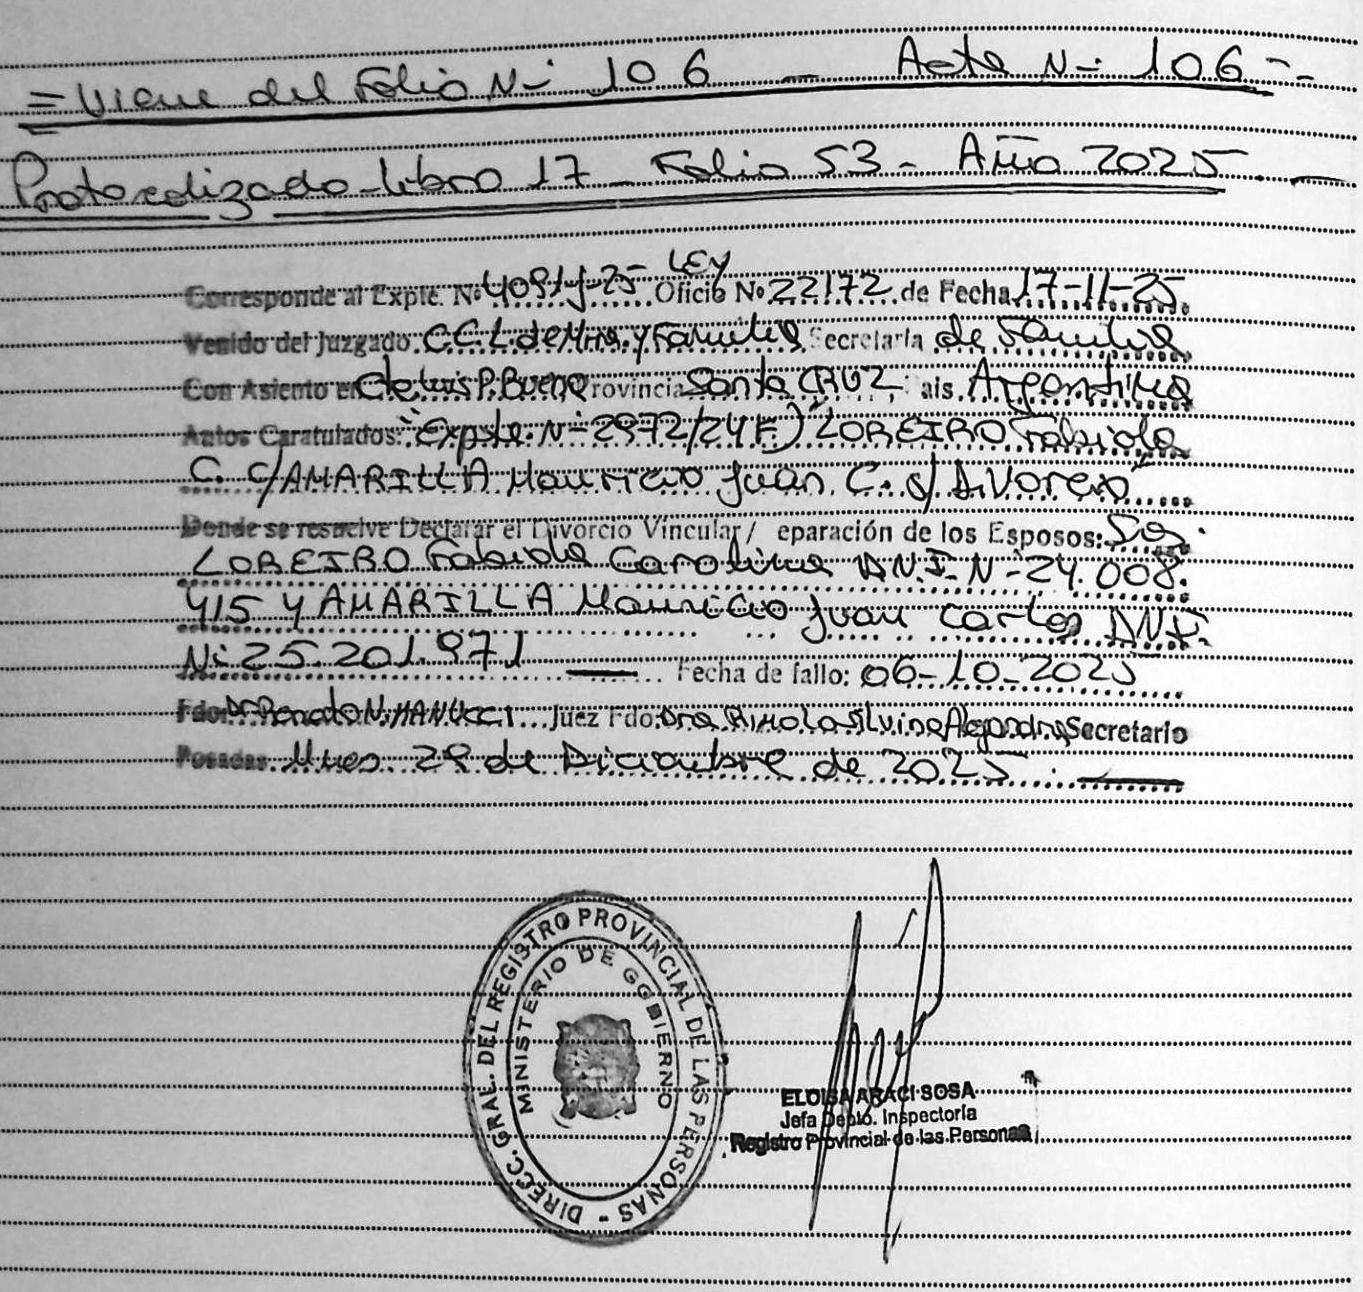 = Viene del Folio Nº 106 — Acta Nº 106 --
Protocolizado Libro 17 — Folio 53 - Año 2025 —
Corresponde al Expte. Nº 4091-J-25- LEY Oficio Nº 22172 de Fecha 17-11-25
Venido del Juzgado: C.C.L. de Mria. y Familia Secretaría de Familia
Con Asiento en Cte Luis P. Buena Provincia Santa CRUZ, ais. Argentina
Autos Caratulados: "Expte. Nº 2972/24 F) LOREIRO Fabiola
C. C/AMARILLA Mauricio Juan C. s/ Divorcio"
Donde se resuelve Declarar el Divorcio Vincular/ eparación de los Esposos: Sra.
LOREIRO Fabiola Carolina D.N.I. Nº 24.008.
415 y AMARILLA Mauricio Juan Carlos DNI.
Nº 25.201.971 — Fecha de fallo: 06-10-2025
Fdo: Dr Renato N. MANUCCI Juez Fdo: Dra Rimola Silvina Alejandra Secretario
Posadas. Mnes. 29 de Diciembre de 2025. —
DIRECC. GRAL. DEL REGISTRO PROVINCIAL DE LAS PERSONAS -
MINISTERIO DE GOBIERNO
ELOISA ARACI SOSA
Jefa Depto. Inspectoría
Registro Provincial de las Personas